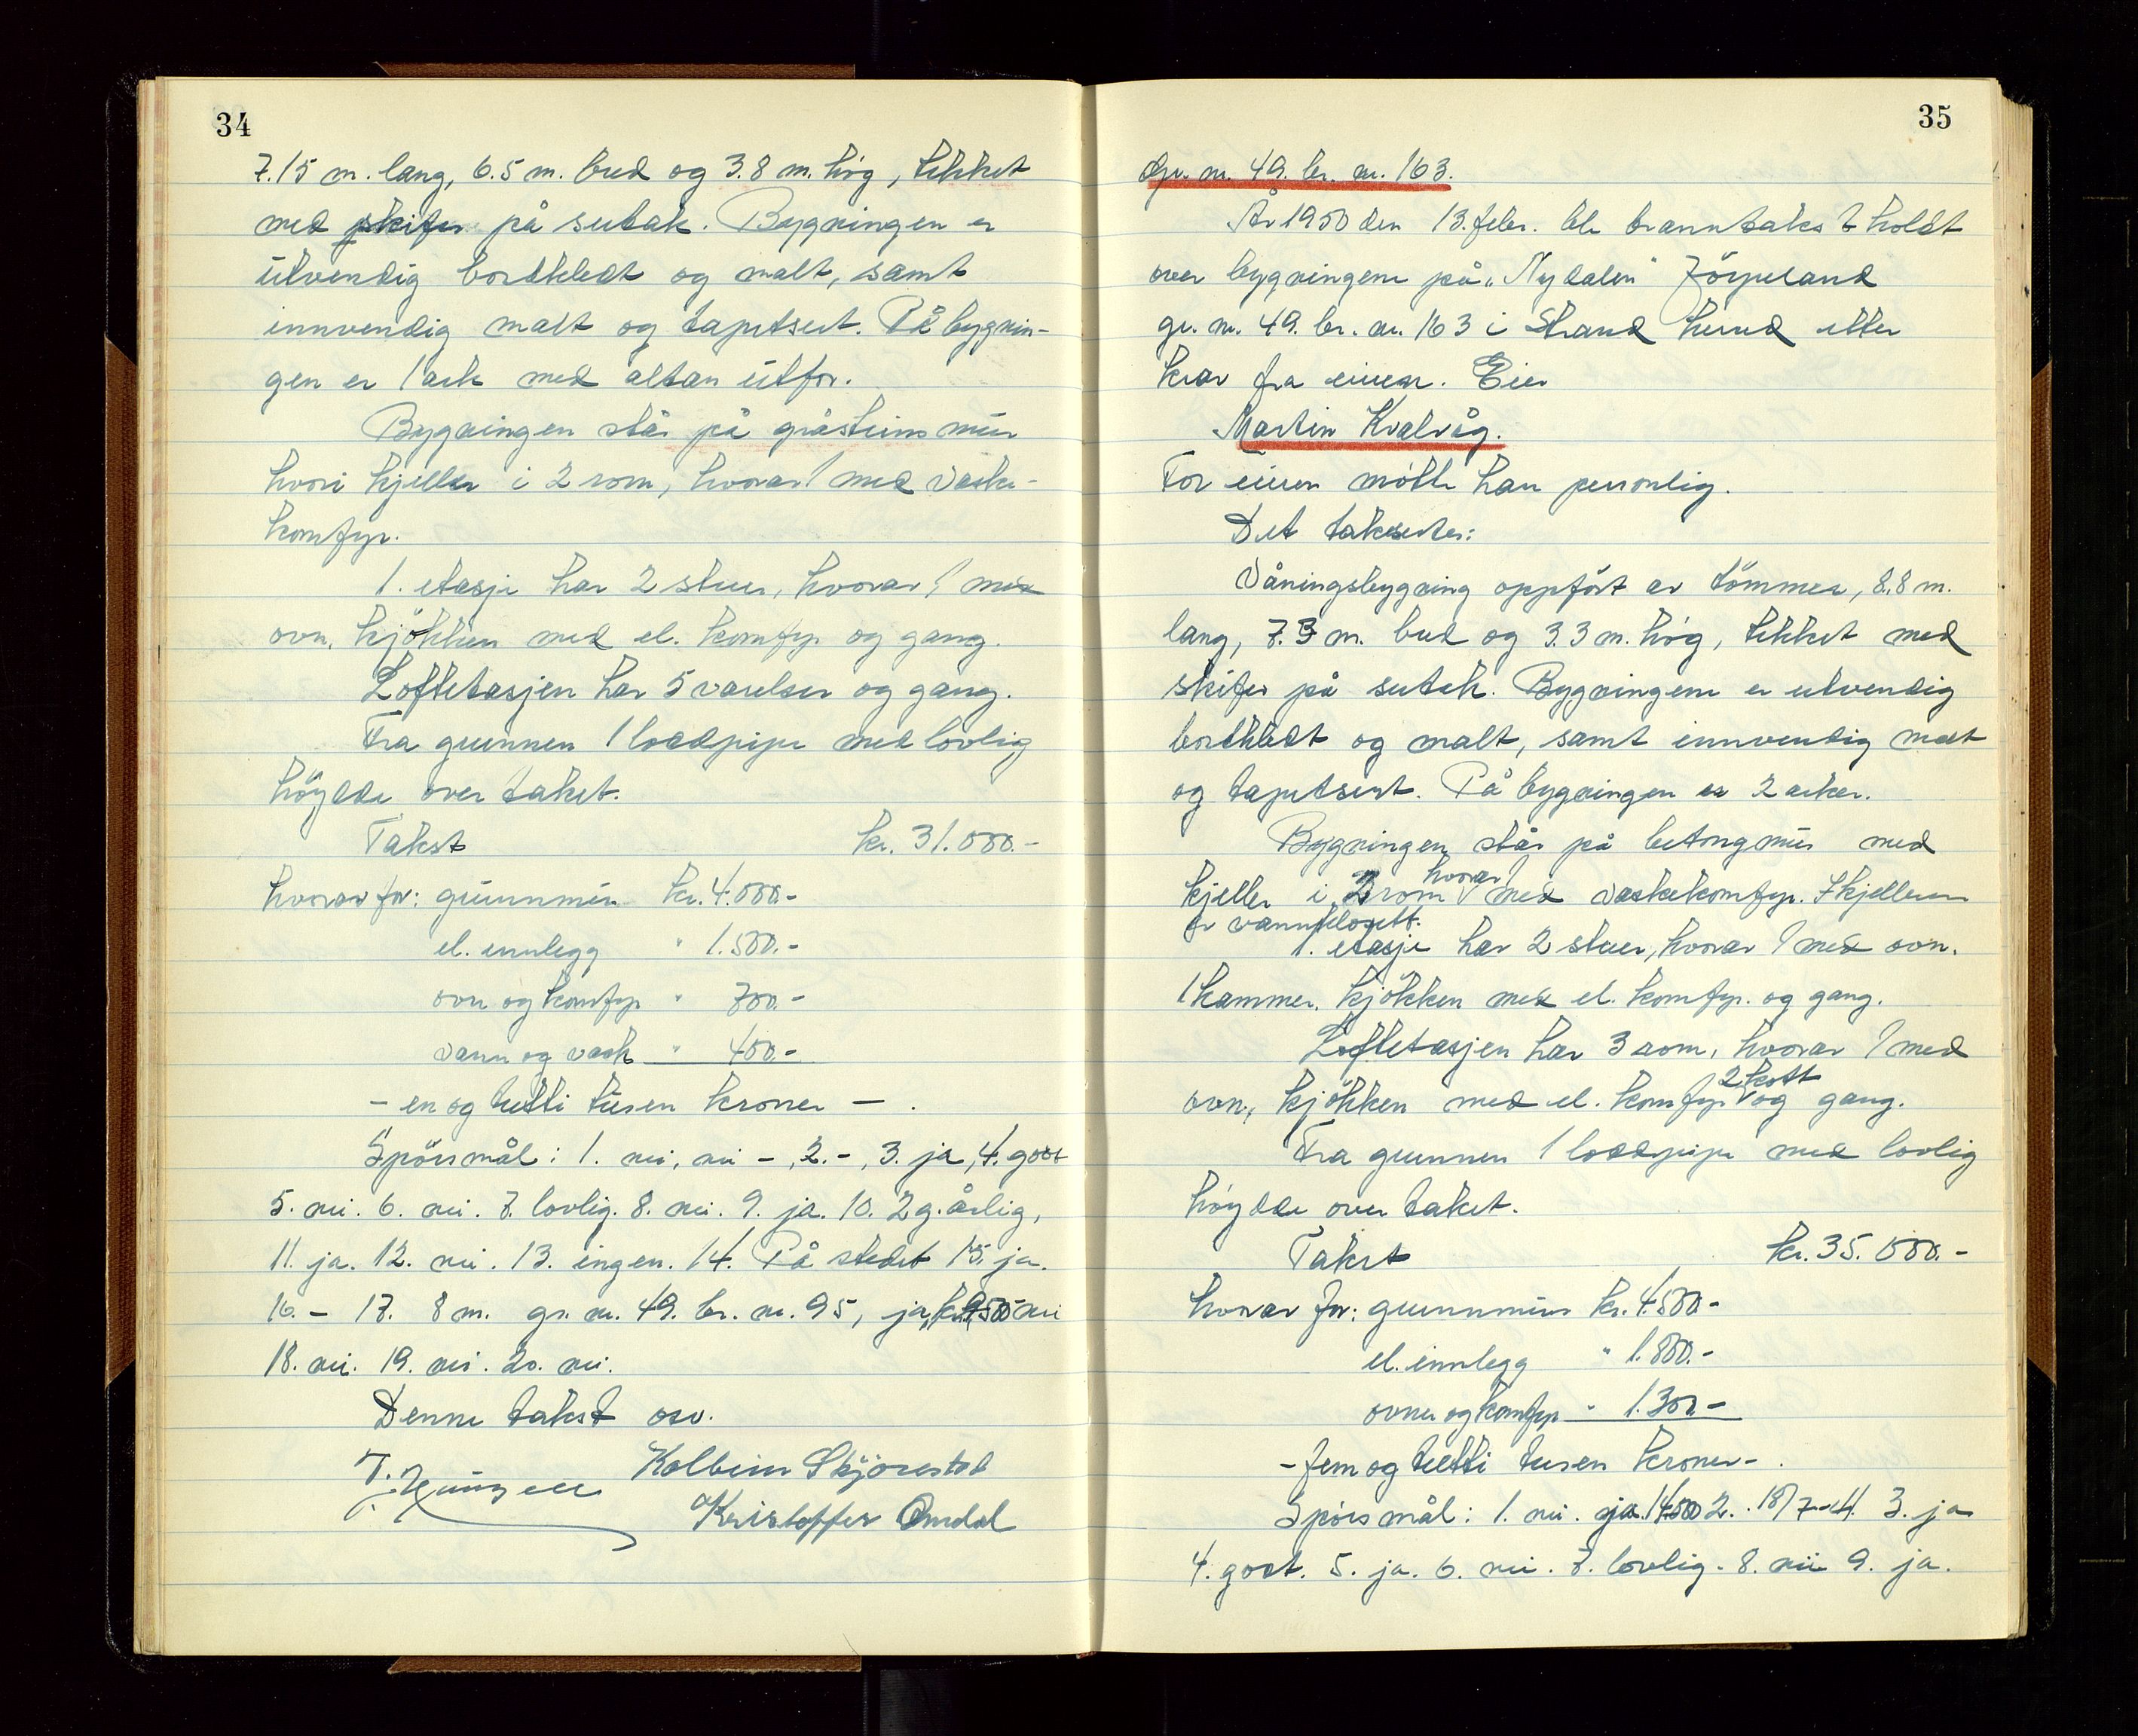 34
7.15 m. lang, 6.5 m. bred og 3.8 m. høg, tekket
med skifer på sutak. Bygningen er
utvendig bordkledt og malt, samt
innvendig malt og tapetsert. På bygnin-
gen er 1 ark med altan utfor.
Bygningen står på gråsteins mur
hvori kjeller i 2 rom, hvorav 1 med vaske-
komfyr.
1. etasje har 2 stuer, hvorav 1 med
ovn, kjökken med el. komfyr og gang.
Loftetasjen har 5 værelser og gang.
Fra grunnen 1 loddpipe med lovlig
höyde over taket.
Takst kr. 31.000.-
hvorav for: grunnmur kr. 4.000.-
el. innlegg " 1.500.-
ovn og komfyr " 700.-
vann og vask " 400.-
- en og tretti tusen kroner - .
Spörsmål: 1. nei, nei -, 2. -, 3. ja, 4. godt
5. nei. 6. nei. 7. lovlig. 8. nei. 9. ja. 10. 2 g. årlig,
11. ja. 12. nei. 13. ingen. 14. På stedet 15. ja.
16. - 17. 8 m. gr. nr. 49. br. nr. 95, ja, nei
18. nei. 19. nei. 20. nei.
Denne takst osv.
Kolbein Skjørestad
Kristoffer Omdal
35
Gr. nr. 49. br. nr. 163.
År 1950 den 13. febr. ble branntakst holdt
over bygningene på "Nydalen" Jörpeland
gr. nr. 49. br. nr. 163 i Strand herred etter
krav fra eieren. Eier
Martin Kvalvåg.
For eieren møtte han personlig.
Det takseres:
Våningsbygning oppfört av tömmer, 8.8 m.
lang, 7.3 m. bred og 3.3 m. høg, tekket med
skifer på sutak. Bygningene er utvendig
bordkledt og malt, samt innvendig malt
og tapetsert. På bygningen er 2 arker.
Bygningen står på betongmur med
kjeller i 3 rom hvorav 1 med vaskekomfyr. I kjelleren
er vannklosett.
1. etasje har 2 stuer, hvorav 1 med ovn,
1 kammer, kjökken med el. komfyr. og gang.
Loftetasjen har 3 rom, hvorav 1 med
ovn, kjökken med el. komfyr 2 kott og gang.
Fra grunnen 1 loddpipe med lovlig
høyde over taket.
Takst kr. 35.000.-
hvorav for: grunnmur kr. 4.500.-
el. innlegg " 1.800.-
ovner og komfyr " 1.300.-
- fem og tretti tusen kroner - .
Spörsmål: 1. nei. ja. 14500 2. 18/7-41. 3. ja
4. godt. 5. ja. 6. nei. 7. lovlig. 8. nei 9. ja.